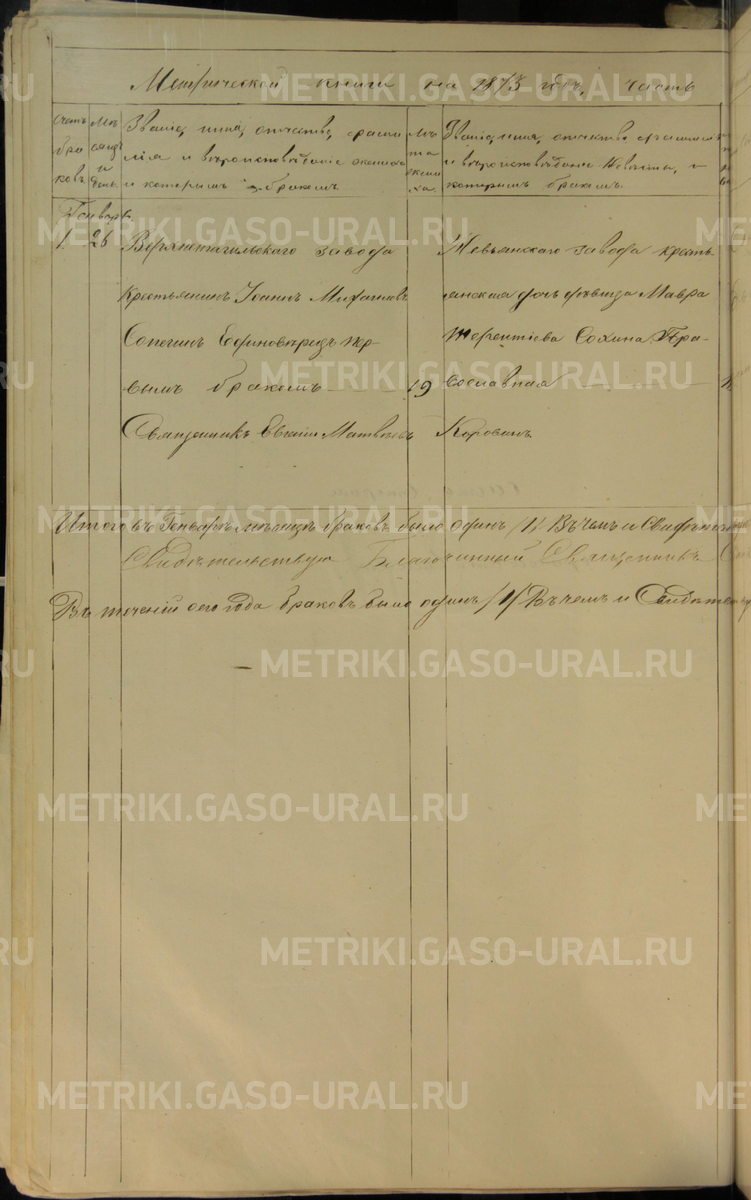 Метрической книги на 1873 годъ, часть
Счетъ браковъ
Мѣсяцъ и день
Званіе, имя, отчество, фамилія и вѣроисповѣданіе жениха и которымъ бракомъ
Лѣта жениха
Званіе, имя, отчество, фамилія и вѣроисповѣданіе невѣсты, и которымъ бракомъ
Генварь
1. 26 Верхнетагильскаго завода
крестьянинъ Іоаннъ Михаиловъ
Сопегинъ Единовѣрецъ пер-
вымъ бракомъ 19
Невьянскаго завода кресть-
янская дочь дѣвица Мавра
Терентіева Сохина Пра-
вославная
Священникъ Евгеній Матвѣевъ Коровинъ
Итого въ Генварѣ мѣсяцѣ браковъ было одинъ /1/. Въ чемъ и
Свидѣтельствую Благочинный Священникъ
Въ теченій сего года браковъ было одинъ /1/ Въ чемъ и
METRIKI.GASO-URAL.RU